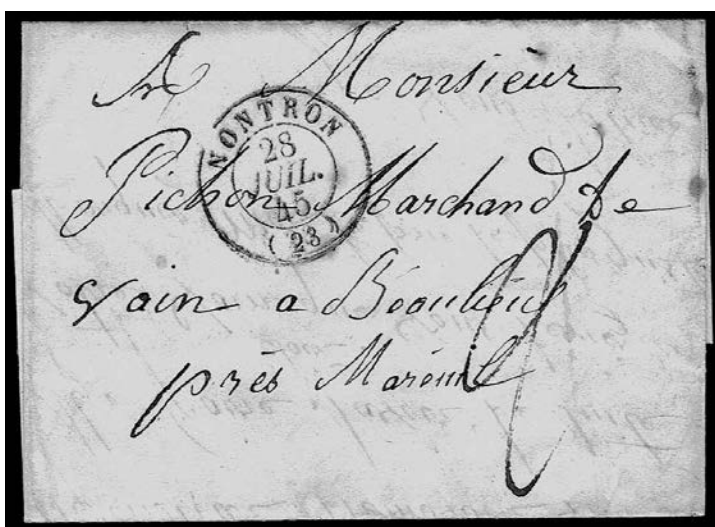 A Monsieur
NONTRON
28
JUIL.
45
(23)
Pichon Marchand de
vain a Beaulieu
près Mareuil
2